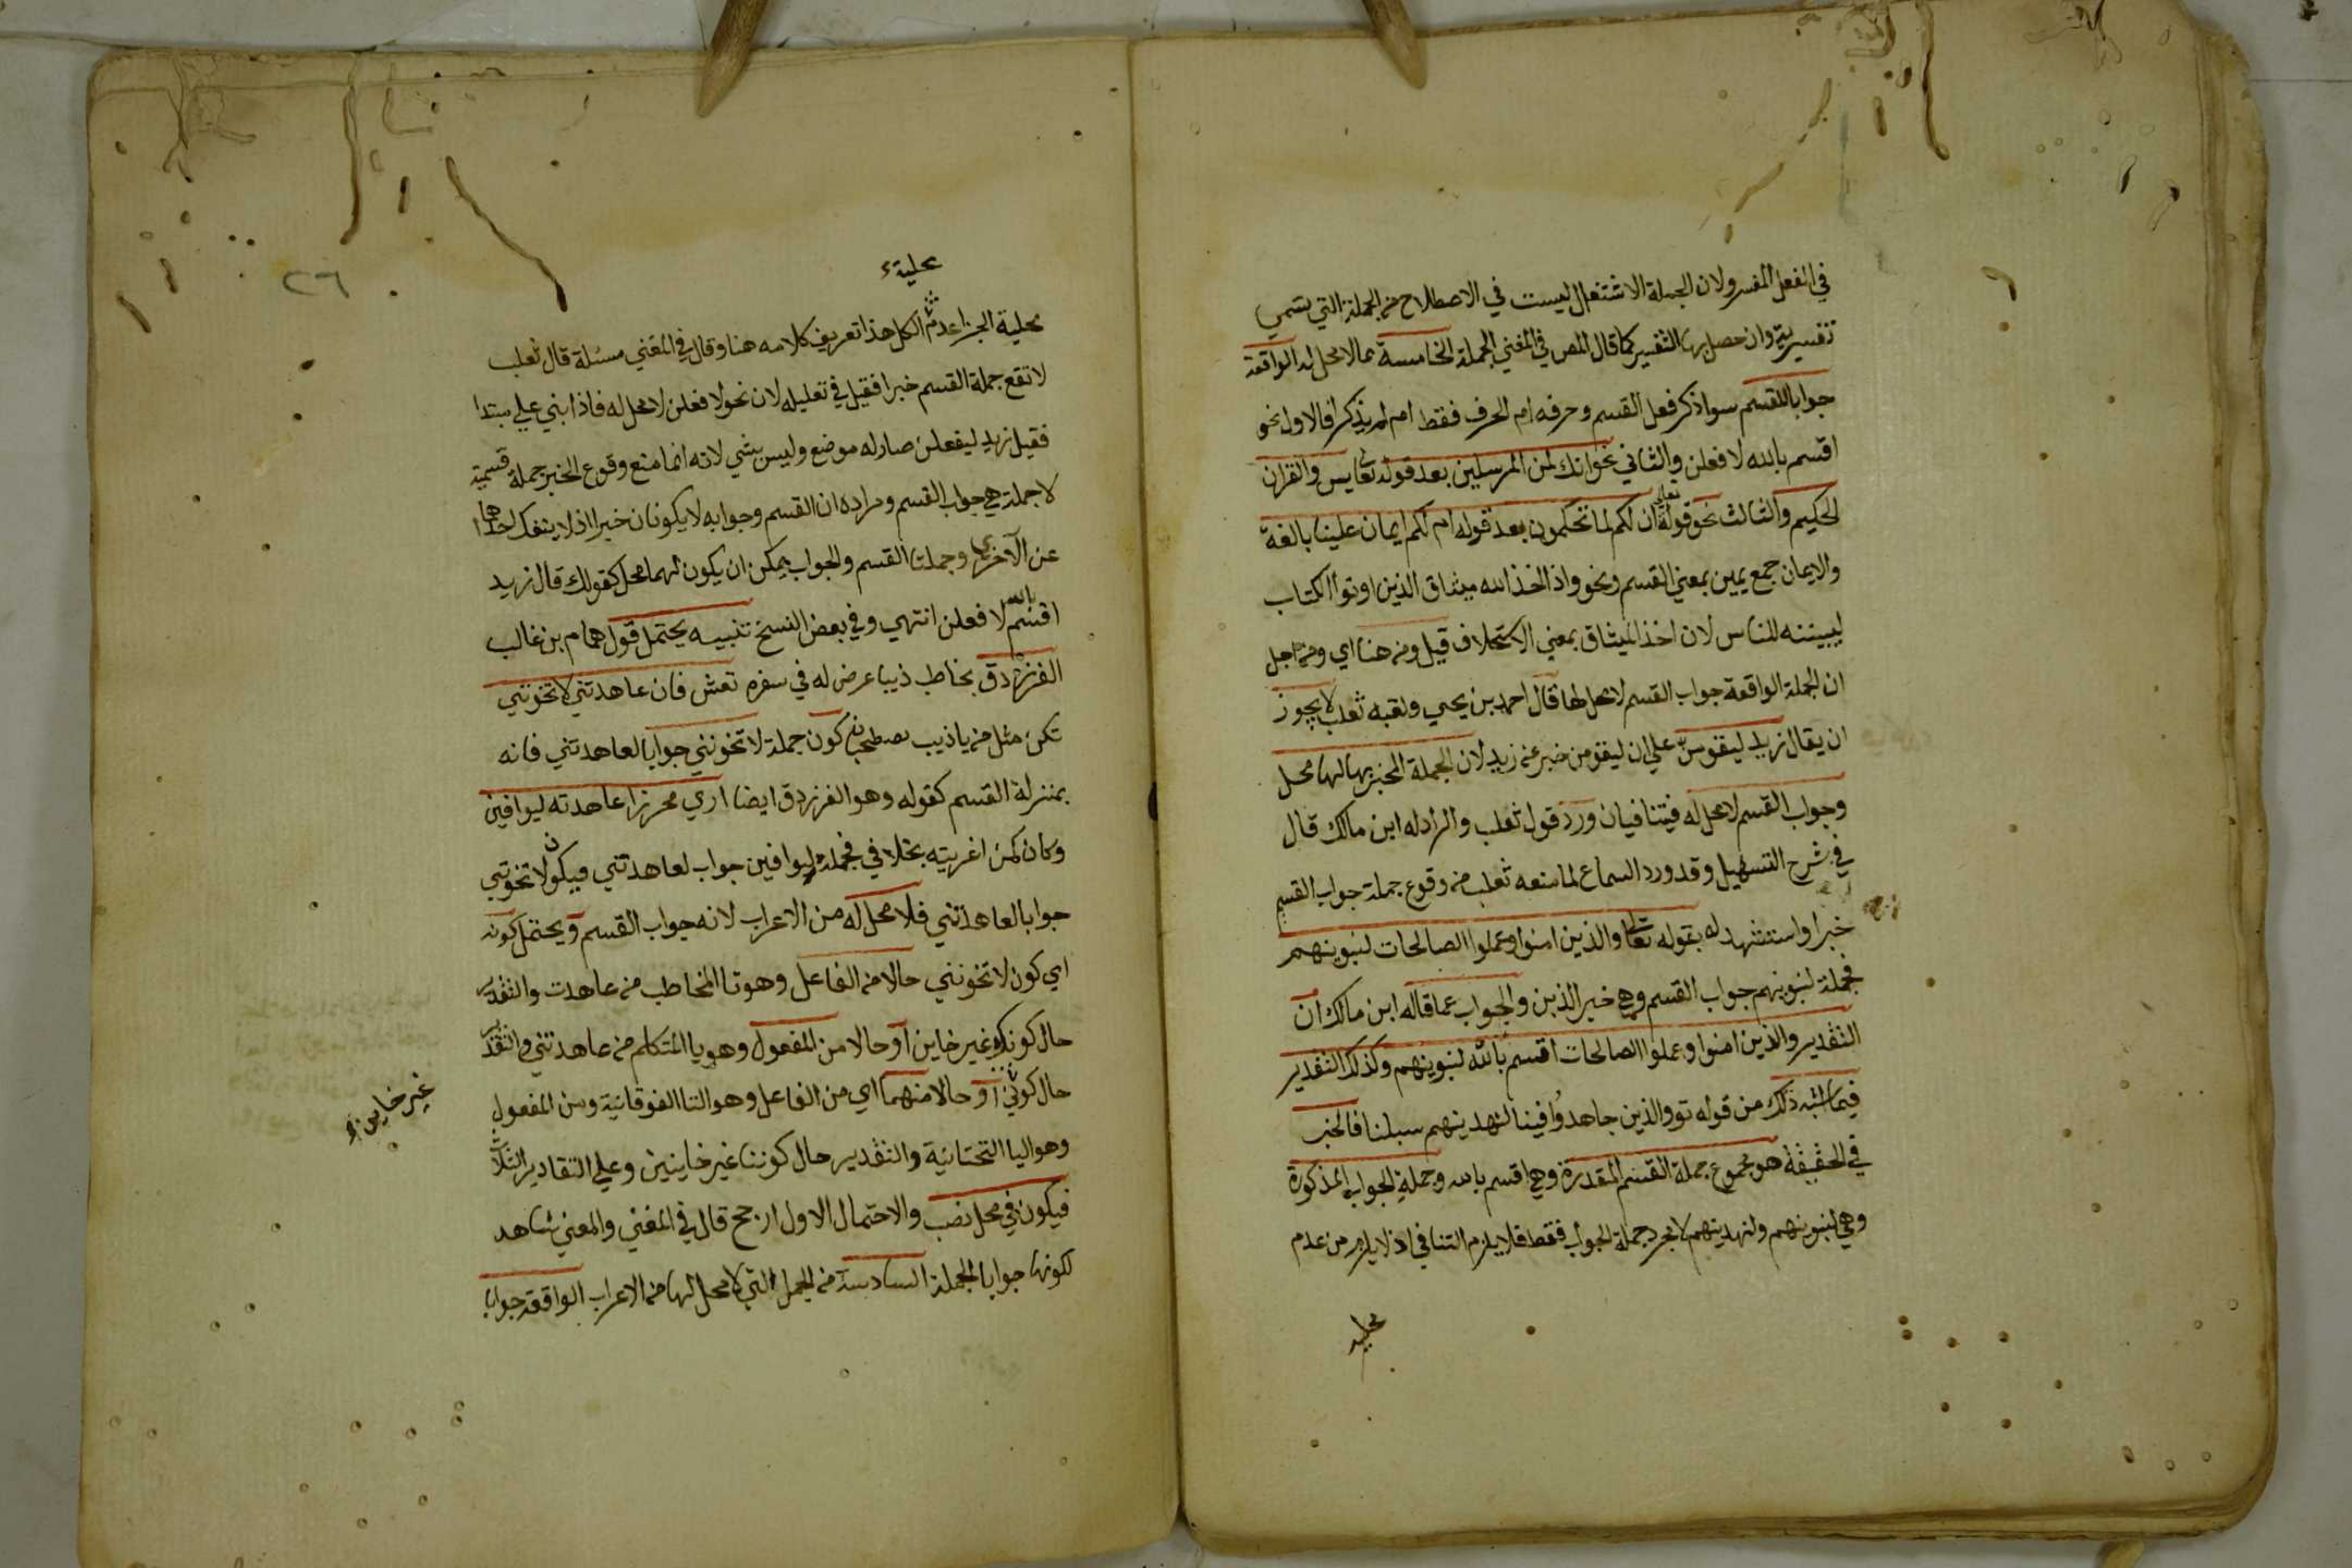 في الفعل المفسر ولان الجملة الاشتغال ليست في الاصطلاح من الجملة التي تسمي
تفسيرية وان حصل بها التفسير كما قال المص في المغني الجملة الخامسة مما لا محل له الواقعة
جوابا للقسم سوا ذكر فعل القسم وحرفه ام الحرف فقط ام لم يذكرا فالاول نحو
اقسم بالله لافعلن والثاني نحو انك لمن المرسلين بعد قوله تعالي يس والقران
الحكيم والثالث نحو قوله تعالي ان لكم لما تحكمون بعد قوله ام لكم ايمان علينا بالغة
والايمان جمع يمين بمعني القسم ونحو واذ اخذ الله ميثاق الذين اوتوا الكتاب
ليبيننه للناس لان اخذ الميثاق بمعني الاستحلاف قيل ومن هنا اي ومن اجل
ان الجملة الواقعة جواب القسم لا محل لها قال احمد بن يحيي ولقبه ثعلب لا يجوز
ان يقال زيد ليقومن علي ان ليقومن خبر عن زيد لان الجملة المخبر بها لها محل
وجواب القسم لا محل له فيتنافيان ورد قول ثعلب والراد له ابن مالك قال
في شرح التسهيل وقد ورد السماع لما منعه ثعلب من وقوع جملة جواب القسم
خبرا واستشهد له بقوله تعالي والذين امنوا وعملوا الصالحات لنبوينهم
فجملة لنبوينهم جواب القسم وهي خبر الذين والجواب عما قاله ابن مالك ان
التقدير والذين امنوا وعملوا الصالحات اقسم بالله لنبوينهم وكذلك التقدير
فيما اشبه ذلك من قوله تع والذين جاهدوا فينا لنهدينهم سبلنا فالخبر
في الحقيقة هو مجموع جملة القسم المقدرة وهي اقسم بالله وجملة الجواب المذكورة
وهي لنبوينهم ولنهدينهم لا مجرد جملة الجواب فقط فلا يلزم التنافي اذ لا يلزم من عدم
محلية
٢٦
محلية
محلية الجزا عدم الكل هذا تعريف كلامه هنا وقال في المغني مسئلة قال ثعلب
لا تقع جملة القسم خبرا فقيل في تعليله لان نحو لافعلن لا محل له فاذا بني علي مبتدا
فقيل زيد ليفعلن صار له موضع وليس بشي لانه انما منع وقوع الخبر جملة قسمية
لا جملة هي جواب القسم ومراده ان القسم وجوابه لا يكونان خبرا اذ لا ينفك احداهما
عن الاخري وجملتا القسم والجواب يمكن ان يكون لهما محل كقولك قال زيد
اقسم بالله لافعلن انتهي وفي بعض النسخ تنبيه يحتمل قول همام بن غالب
الفرزدق يخاطب ذيبا عرض له في سفره تعش فان عاهدتني لا تخونني
تكن مثل من يا ذيب يصطحبان كون جملة لا تخونني جوابا لعاهدتني فانه
بمنزلة القسم كقوله وهو الفرزدق ايضا اري محرزا عاهدته ليوافين
وكان كمن اغريته بخلافي فجملة ليوافين جواب لعاهدتني فيكون لا تخونني
جوابا لعاهدتني فلا محل له من الاعراب لانه جواب القسم ويحتمل كونه
اي كون لا تخونني حالا من الفاعل وهو تا المخاطب من عاهدت والتقدير
حال كونك غير خاين او حالا من المفعول وهو يا المتكلم من عاهدتني والتقدير
حال كوني او حالا منهما اي من الفاعل وهو التا الفوقانية ومن المفعول
غير خاين
وهو اليا التحتانية والتقدير حال كوننا غير خاينين وعلي التقادير الثلاث
فيكون في محل نصب والاحتمال الاول ارجح قال في المغني والمعني شاهد
لكونها جوابا الجملة السادسة من الجمل التي لا محل لها من الاعراب الواقعة جوابا